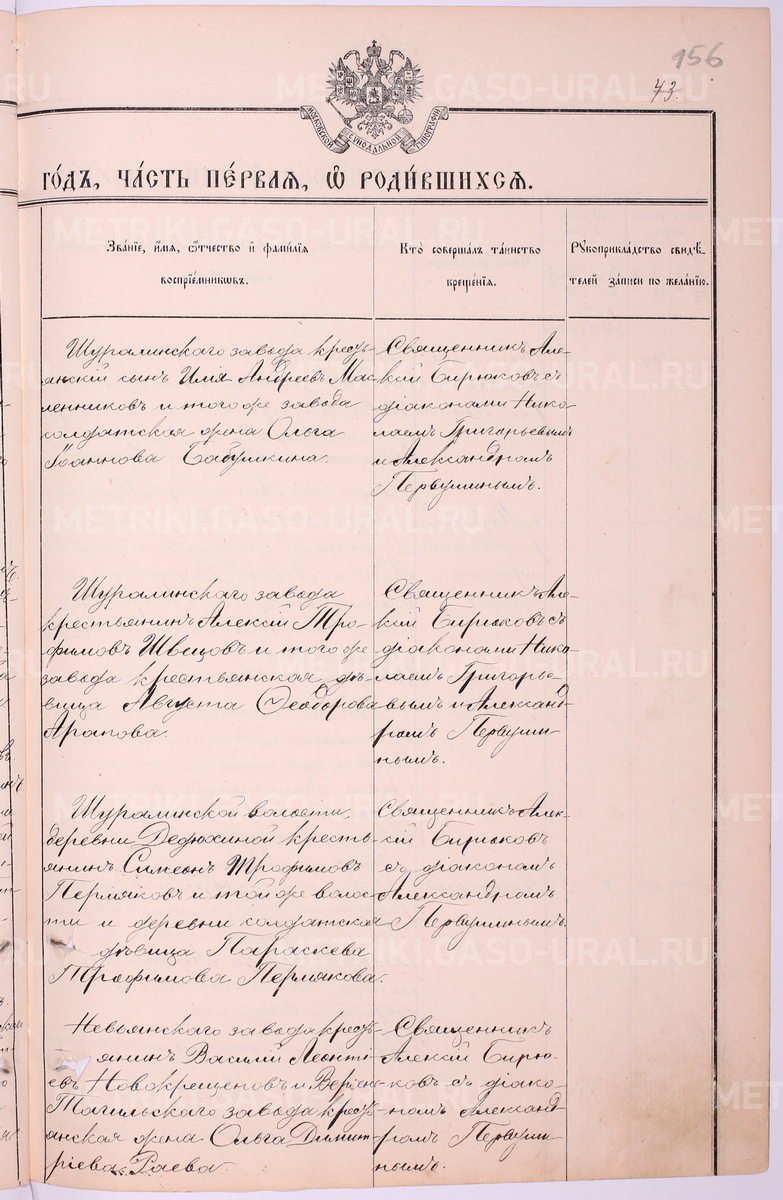 156
43.
МОСКОВСКОЙ СѴНОДАЛЬНОЙ ТИПОГРАФІИ
ГО́ДЪ, ЧА́СТЬ ПЕ́РВАЯ, Ѡ РОДИ́ВШИХСЯ.
Зва́ніе, и́мя, ѻ́тчество и҆ фами́лія
воспріе́мниковъ.
Кто̀ соверша́лъ та́инство
креще́нія.
Рꙋкоприкла́дство свидѣ́-
телей за́писи по жела́нію.
Шуралинскаго завода кресть-
янскій сынъ Илія Андреевъ Мас-
ленниковъ и того же завода
солдатская жена Ольга
Іоаннова Бабушкина.
Священникъ Але-
ксій Бирюковъ съ
діаконами Нико-
лаемъ Григорьевымъ
и Александромъ
Первушинымъ.
Шуралинскаго завода
крестьянинъ Алексій Тро-
фимовъ Швецовъ и того же
завода крестьянская дѣ-
вица Августа Ѳеодорова
Арапова.
Священникъ Але-
ксій Бирюковъ съ
діаконами Нико-
лаемъ Григорье-
вымъ и Александ-
ромъ Первуши-
нымъ.
Шуралинской волости,
деревни Дедюхиной кресть-
янинъ Симеонъ Трофимовъ
Пермяковъ и той же волос-
ти и деревни солдатская
дѣвица Параскева
Трофимова Пермякова.
Священникъ Алек-
сій Бирюковъ
съ діакономъ
Александромъ
Первушинымъ.
Невьянскаго завода кресть-
янинъ Василій Леонті-
евъ Новокрещеновъ и Верхне-
Тагильскаго завода кресть-
янская жена Ольга Димит-
ріева Раева.
Священникъ
Алексій Бирю-
ковъ съ діако-
номъ Александ-
ромъ Первуши-
нымъ.
METRIKI.GASO-URAL.RU